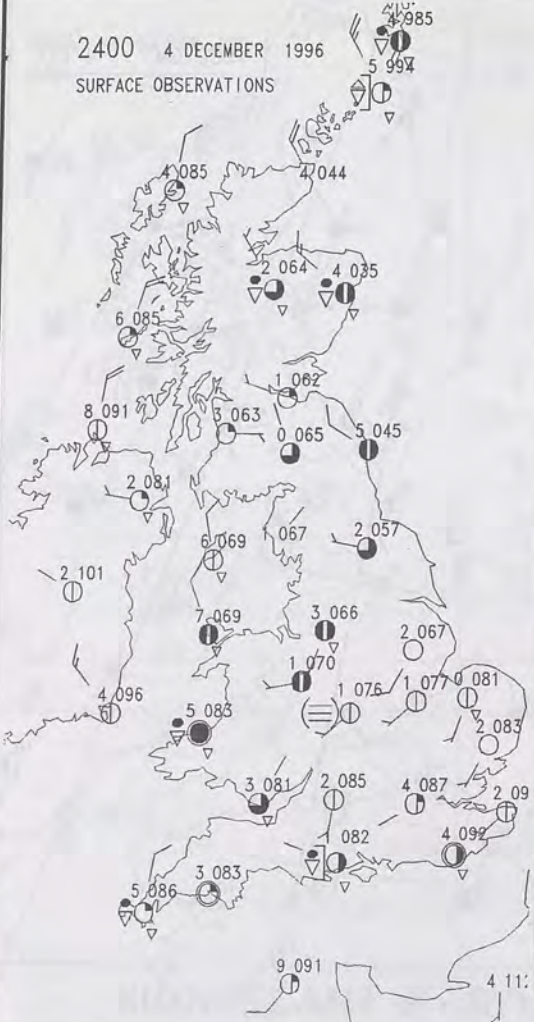 2400 4 DECEMBER 1996
SURFACE OBSERVATIONS
4 985
5 994
4 085
4 044
2 064
4 035
6 085
1 062
8 091
3 063
0 065
5 045
2 081
6 069
067
2 057
2 101
7 069
3 066
2 067
1 070
0 081
4 096
1 076
1 077
5 083
2 083
3 081
2 085
4 087
2 09
1 082
4 092
5 086
3 083
9 091
4 112